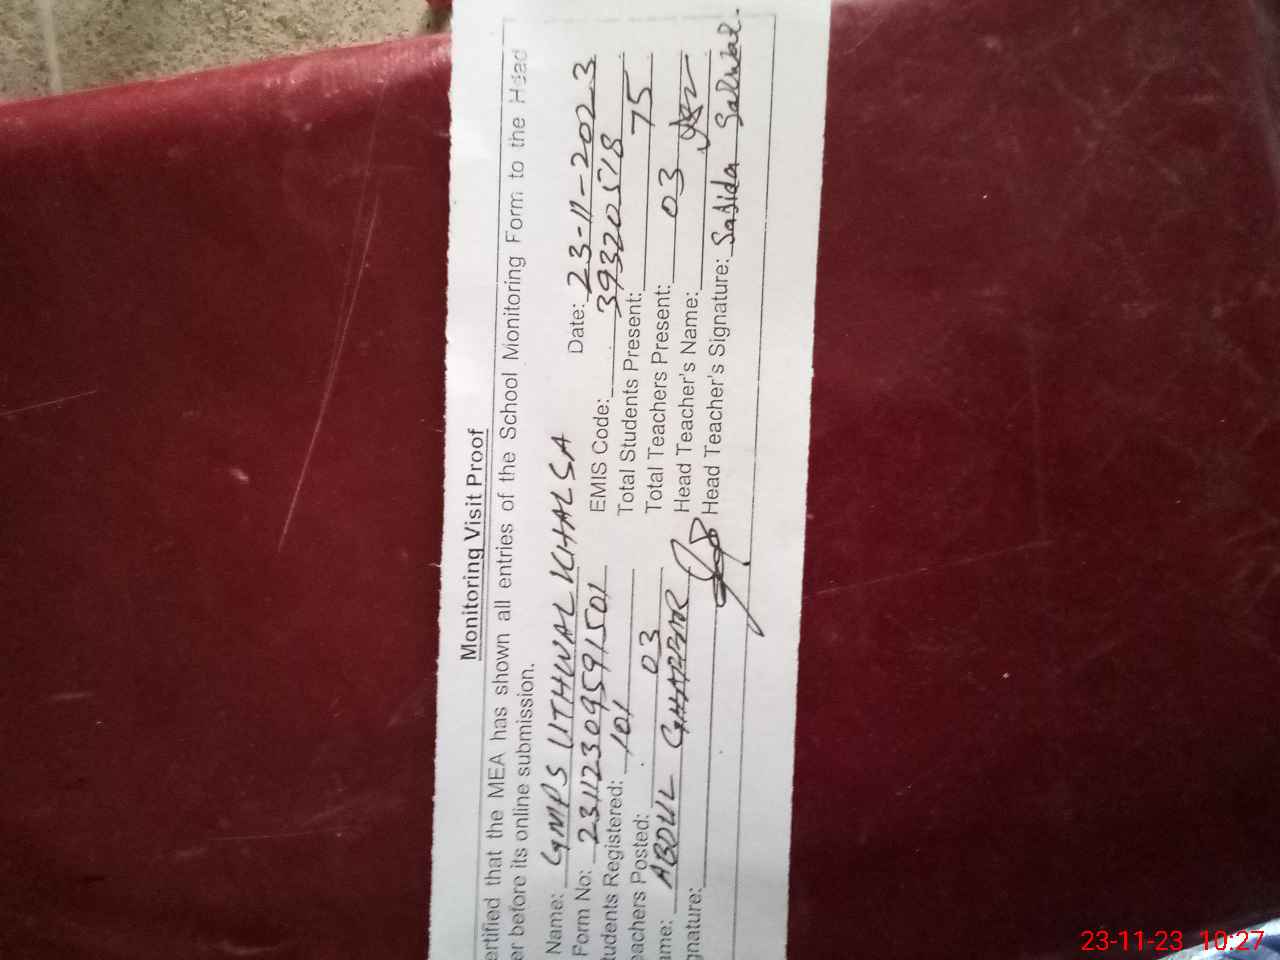 Monitoring Visit Proof
ertified that the MEA has shown all entries of the School Monitoring Form to the Head
er before its online submission.
Name: GMPS UTHWAL KHALSA Date: 23-11-2023
Form No: 23112309591501 EMIS Code: 39320518
tudents Registered: 101 Total Students Present: 75
eachers Posted: 03 Total Teachers Present: 03
ame: ABDUL GHAFFAR Head Teacher's Name:
gnature: Head Teacher's Signature: Sajida
23-11-23 10:27